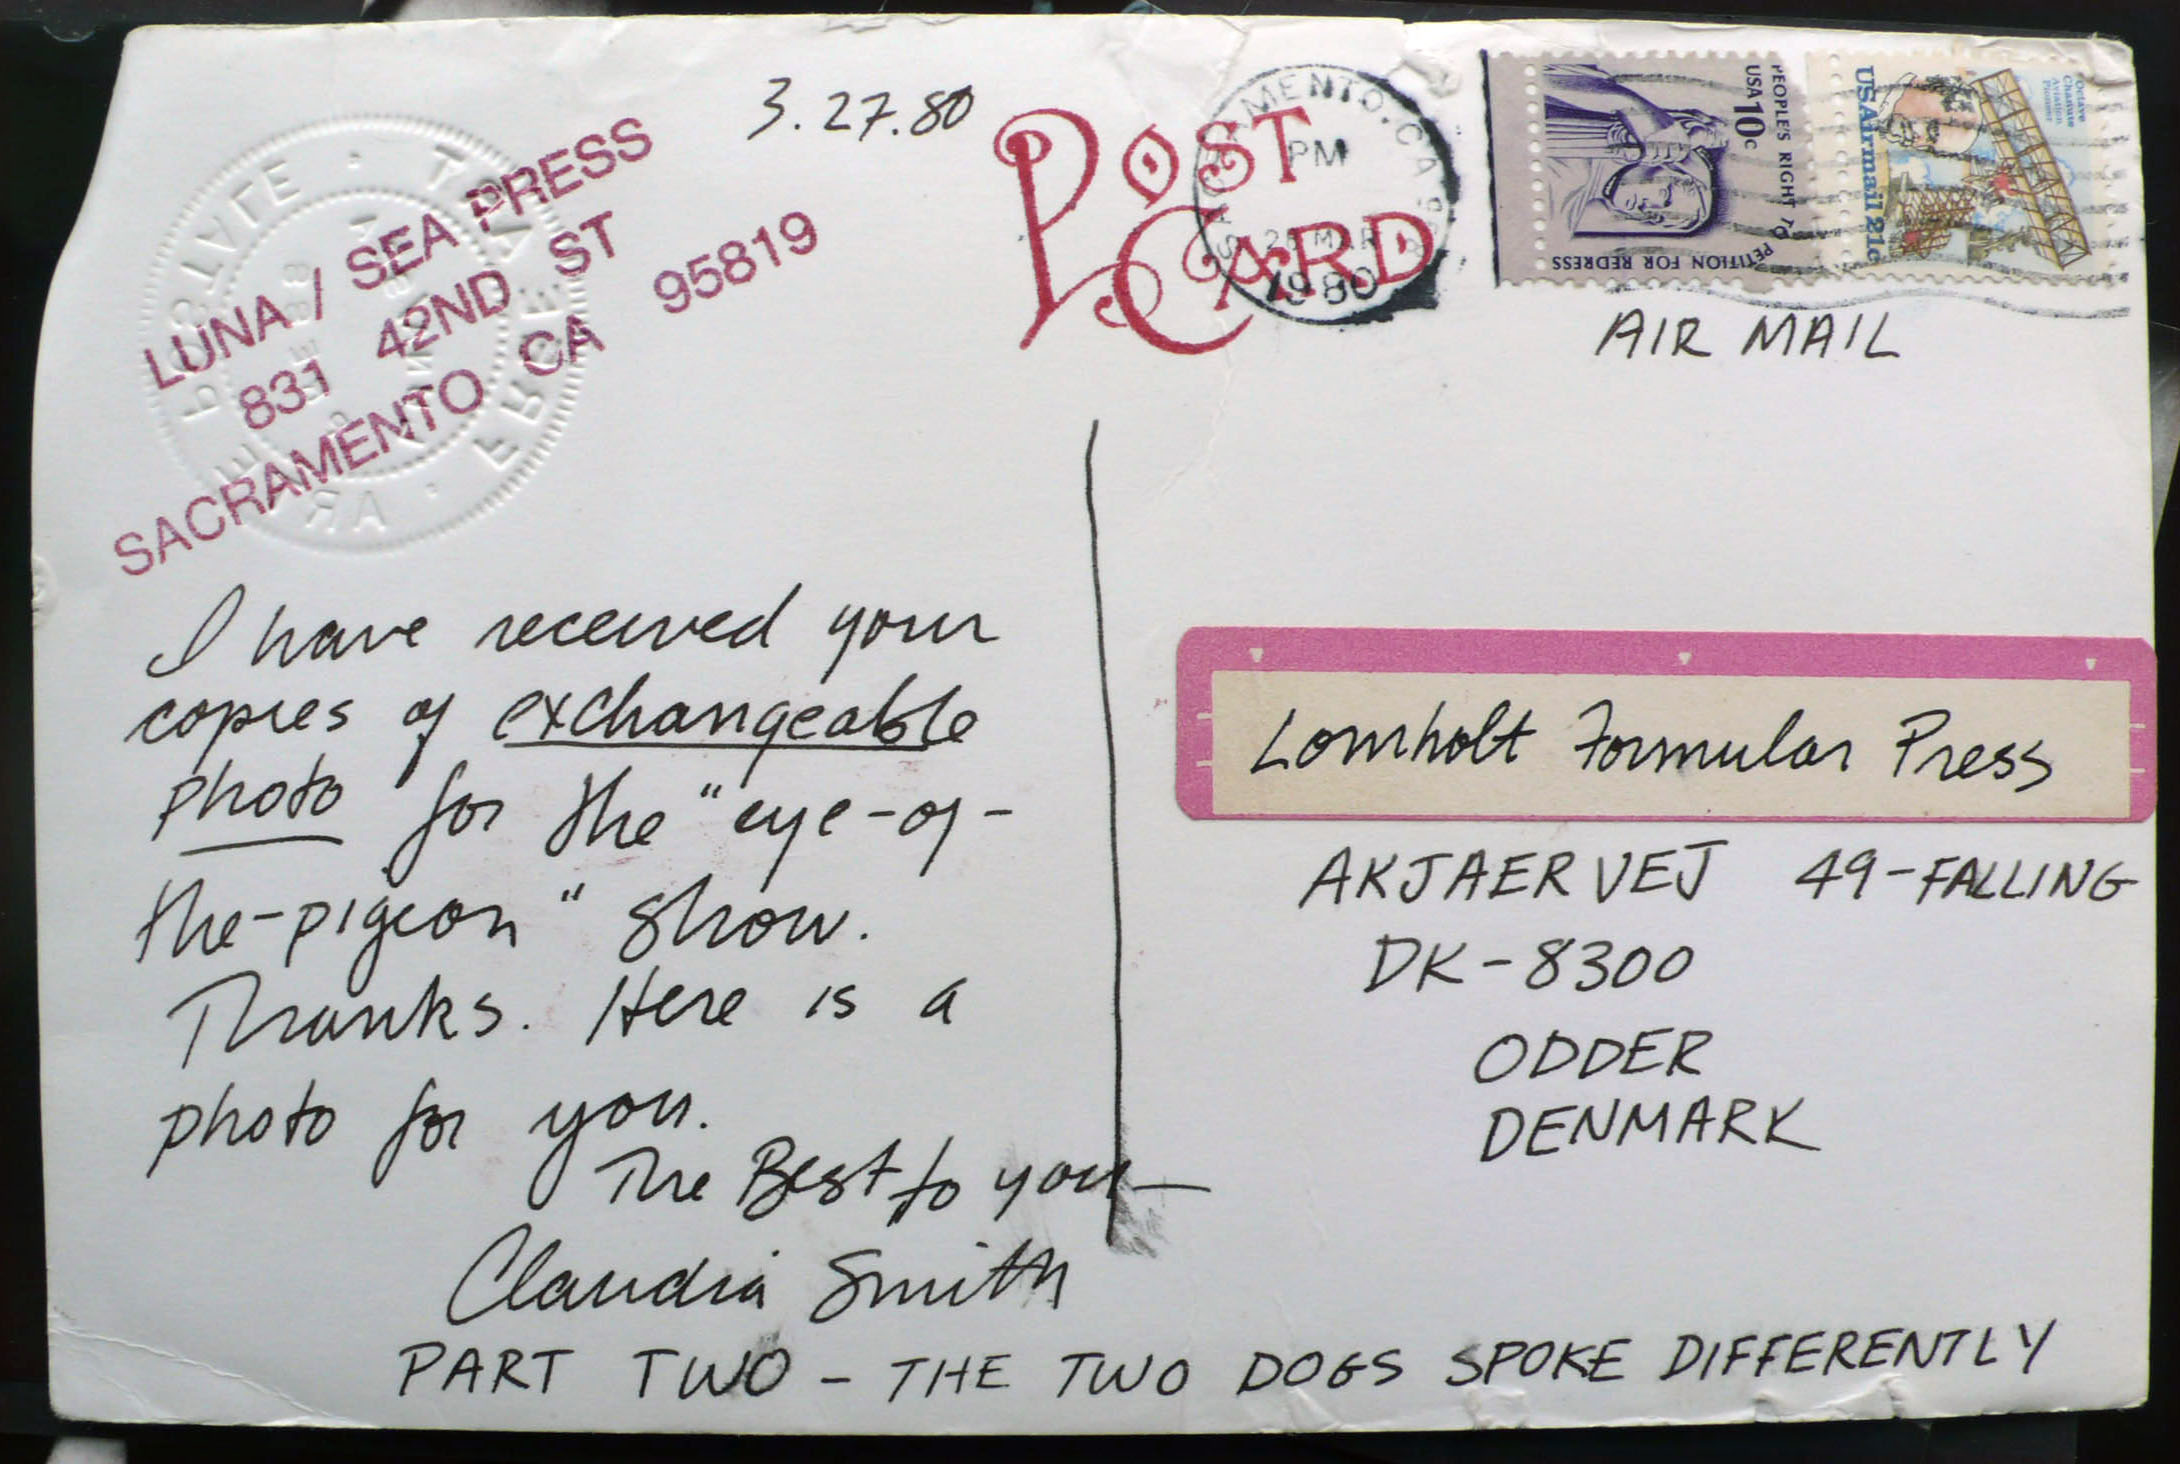 3.27.80
LUNA / SEA PRESS
831 42ND ST
SACRAMENTO CA 95819
POST
CARD
SACRAMENTO, CA
PM
MAR
1980
PEOPLE'S RIGHT TO PETITION FOR REDRESS
USA 10c
Octave
Chanute
Aviation
Pioneer
USAirmail 21c
AIR MAIL
I have received your
copies of exchangeable
photo for the "eye-of-
the-pigeon" show.
Thanks. Here is a
photo for you.
The Best to you—
Claudia Smith
Lomholt Formular Press
AKJAERVEJ 49-FALLING
DK-8300
ODDER
DENMARK
PART TWO - THE TWO DOGS SPOKE DIFFERENTLY